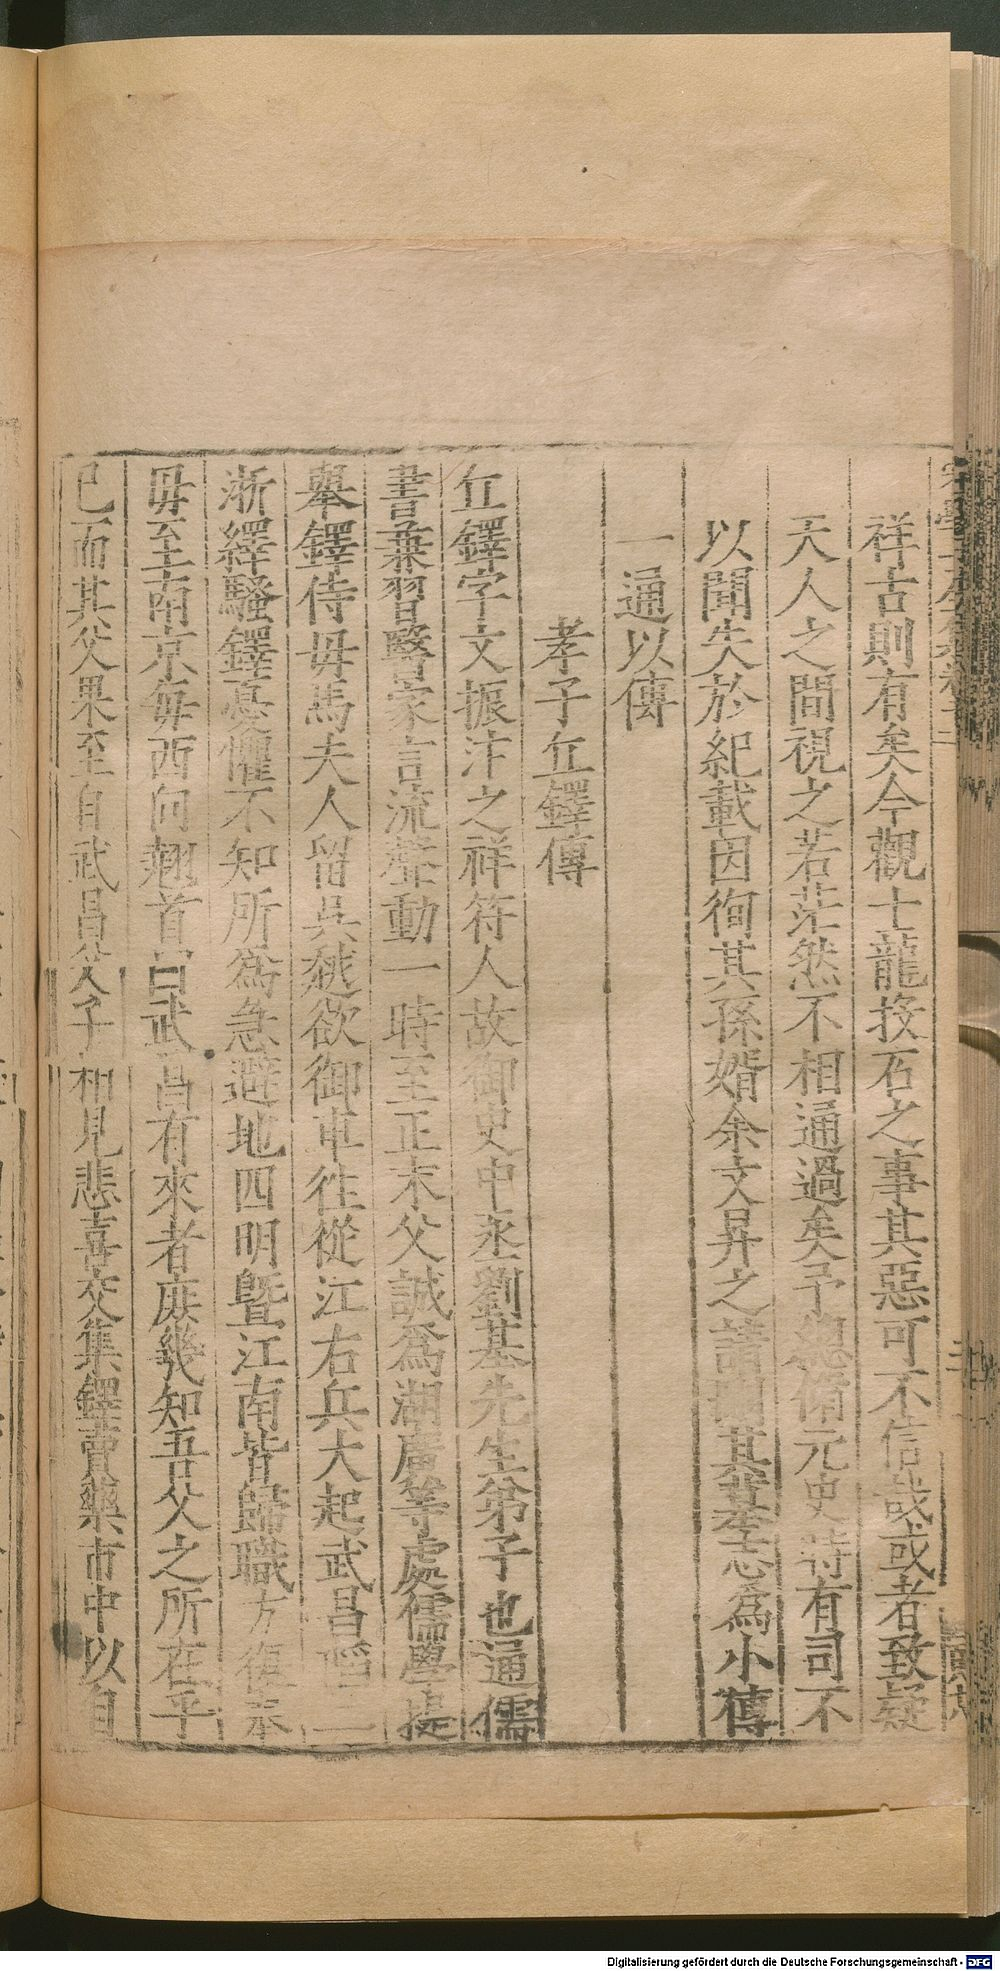 祥古則有矣今觀士龍投石之事其惡可不信哉或者致疑
天人之間視之若茫然不相通過矣予總脩元史時有司不
以聞失於紀載因徇其孫婿余文昇之請剛其墓志爲小傳
一通以傳
孝子丘鐸傳
丘鐸字文振汴之祥符人故御史中丞劉基先生弟子也通儒
書兼習醫家言流聲動一時至正末父誠爲湖廣等處儒學提
舉鐸侍毋馬夫人留吳越欲御車徃從江右兵大起武昌
浙繹騷鐸憂懼不知所爲急避地四明曁江南皆歸職方復奉
毋至南京每西向翹首曰武昌有來者庶幾知吾父之所在乎
已而其父果至自武昌父子相見悲喜交集鐸賣藥市中以自
Digitalisierung gefördert durch die Deutsche Forschungsgemeinschaft - DFG